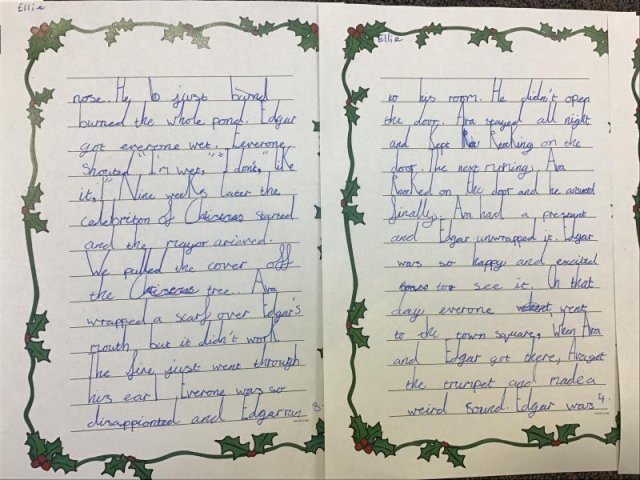 Ellie
nose. He to just burnd
burned the whole pond. Edgar
got everyone wet. Eeverone
shouted "I'm wet," "I don't like
it,!" Nine weeks later the
celebriton of Chrismas started
and the mayor arieved.
We pulled the cover off
the Chrismas tree.. Ava
wrapped a scarf over Edgar's
mouth but it didn't work.
The fire just went through
his ear! Everone was so
disappionted and Edgar run
3.
Ellie
to his room. He didn't open
the door. Ava stayed all night
and kept kocking on the
door. The next morning, Ava
kocked on the door and he
finally, Ava had a present
and Edgar unwrapped it. Edgar
was so happy and excited
too see it. On that
day everone went
to the town square. When Ava
and Edgar got there, Ava got
the trumpet and made a
weird sound. Edgar was
4.